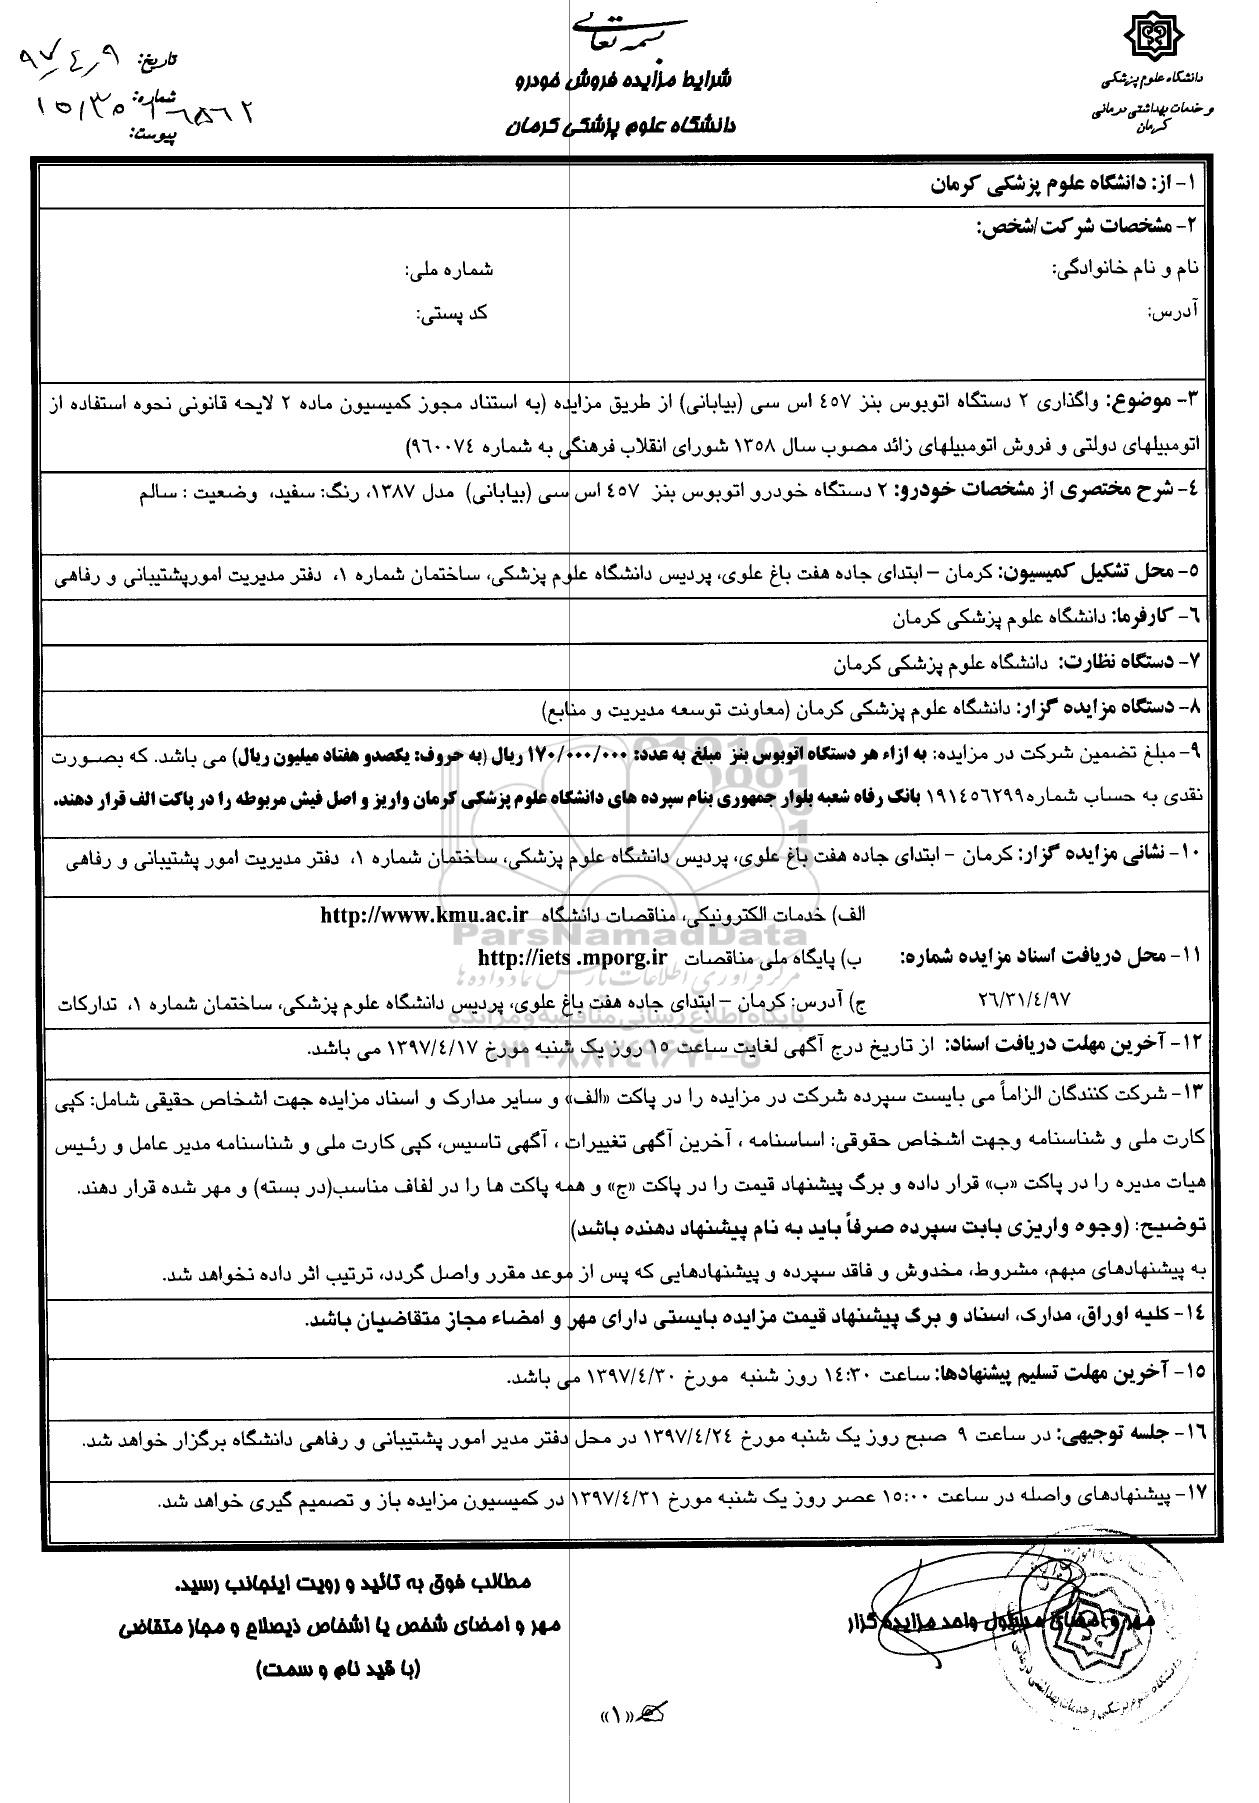 بسمه تعالی
شرایط مزایده فروش خودرو
دانشگاه علوم پزشکی کرمان
دانشگاه علوم پزشکی
و خدمات بهداشتی درمانی
کرمان
تاریخ: ۹۷٫٤٫۹
شماره:
پیوست:
۱- از: دانشگاه علوم پزشکی کرمان
۲- مشخصات شرکت/شخص:
نام و نام خانوادگی: شماره ملی:
آدرس: کد پستی:
۳- موضوع: واگذاری ۲ دستگاه اتوبوس بنز ٤٥٧ اس سی (بیابانی) از طریق مزایده (به استناد مجوز کمیسیون ماده ۲ لایحه قانونی نحوه استفاده از
اتومبیلهای دولتی و فروش اتومبیلهای زائد مصوب سال ۱۳٥۸ شورای انقلاب فرهنگی به شماره ۹٦۰۰۷٤)
٤- شرح مختصری از مشخصات خودرو: ۲ دستگاه خودرو اتوبوس بنز ٤٥٧ اس سی (بیابانی) مدل ۱۳۸۷، رنگ: سفید، وضعیت : سالم
٥- محل تشکیل کمیسیون: کرمان – ابتدای جاده هفت باغ علوی، پردیس دانشگاه علوم پزشکی، ساختمان شماره ۱، دفتر مدیریت امورپشتیبانی و رفاهی
٦- کارفرما: دانشگاه علوم پزشکی کرمان
۷- دستگاه نظارت: دانشگاه علوم پزشکی کرمان
۸- دستگاه مزایده گزار: دانشگاه علوم پزشکی کرمان (معاونت توسعه مدیریت و منابع)
۹- مبلغ تضمین شرکت در مزایده: به ازاء هر دستگاه اتوبوس بنز مبلغ به عدد: ۱۷۰/۰۰۰/۰۰۰ ریال (به حروف: یکصدو هفتاد میلیون ریال) می باشد. که بصورت
نقدی به حساب شماره۱۹۱٤٥٦۲۹۹ بانک رفاه شعبه بلوار جمهوری بنام سپرده های دانشگاه علوم پزشکی کرمان واریز و اصل فیش مربوطه را در پاکت الف قرار دهند.
۱۰- نشانی مزایده گزار: کرمان – ابتدای جاده هفت باغ علوی، پردیس دانشگاه علوم پزشکی، ساختمان شماره ۱، دفتر مدیریت امور پشتیبانی و رفاهی
الف) خدمات الکترونیکی، مناقصات دانشگاه http://www.kmu.ac.ir
ParsNamadData
۱۱- محل دریافت اسناد مزایده شماره: ب) پایگاه ملی مناقصات http://iets .mporg.ir
مرکز فرآوری اطلاعات پارس نماد داده ها
۲٦/۳۱/٤/۹۷ ج) آدرس: کرمان – ابتدای جاده هفت باغ علوی، پردیس دانشگاه علوم پزشکی، ساختمان شماره ۱، تدارکات
پایگاه اطلاع رسانی مناقصه و مزایده
۱۲- آخرین مهلت دریافت اسناد: از تاریخ درج آگهی لغایت ساعت ۱٥ روز یک شنبه مورخ ۱۳۹۷/٤/۱۷ می باشد.
۰۲۱-۸۸۳٤۹٦۷۰-٥
۱۳- شرکت کنندگان الزاماً می بایست سپرده شرکت در مزایده را در پاکت «الف» و سایر مدارک و اسناد مزایده جهت اشخاص حقیقی شامل: کپی
کارت ملی و شناسنامه وجهت اشخاص حقوقی: اساسنامه ، آخرین آگهی تغییرات ، آگهی تاسیس، کپی کارت ملی و شناسنامه مدیر عامل و رئیس
هیات مدیره را در پاکت «ب» قرار داده و برگ پیشنهاد قیمت را در پاکت «ج» و همه پاکت ها را در لفاف مناسب(در بسته) و مهر شده قرار دهند.
توضیح: (وجوه واریزی بابت سپرده صرفاً باید به نام پیشنهاد دهنده باشد)
به پیشنهادهای مبهم، مشروط، مخدوش و فاقد سپرده و پیشنهادهایی که پس از موعد مقرر واصل گردد، ترتیب اثر داده نخواهد شد.
۱٤- کلیه اوراق، مدارک، اسناد و برگ پیشنهاد قیمت مزایده بایستی دارای مهر و امضاء مجاز متقاضیان باشد.
۱٥- آخرین مهلت تسلیم پیشنهادها: ساعت ۱٤:۳۰ روز شنبه مورخ ۱۳۹۷/٤/۳۰ می باشد.
۱٦- جلسه توجیهی: در ساعت ۹ صبح روز یک شنبه مورخ ۱۳۹۷/٤/۲٤ در محل دفتر مدیر امور پشتیبانی و رفاهی دانشگاه برگزار خواهد شد.
۱۷- پیشنهادهای واصله در ساعت ۱٥:۰۰ عصر روز یک شنبه مورخ ۱۳۹۷/٤/۳۱ در کمیسیون مزایده باز و تصمیم گیری خواهد شد.
مهر و امضای مسئول واحد مزایده گزار
مطالب فوق به تائید و رویت اینجانب رسید.
مهر و امضای شخص یا اشخاص ذیصلاح و مجاز متقاضی
(با قید نام و سمت)
«۱»